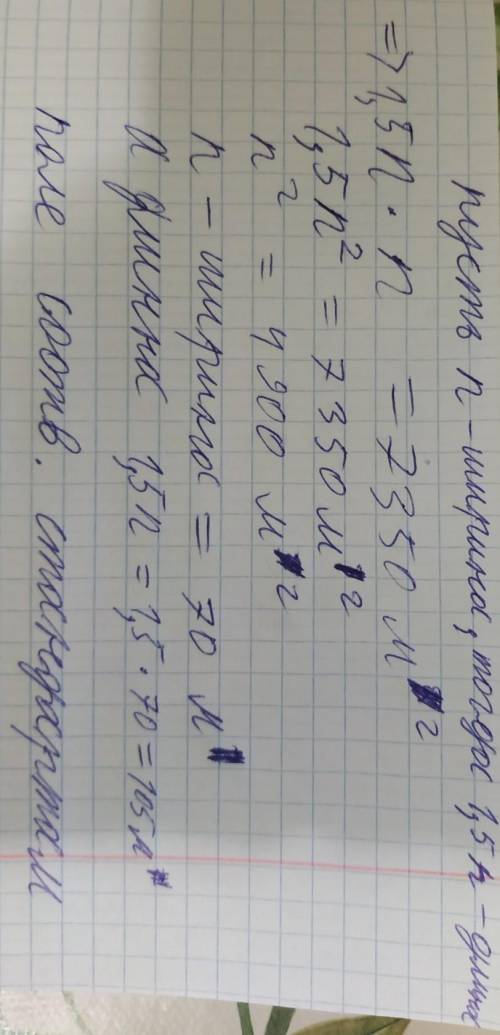 пусть n - ширина, тогда 1,5n - длина
=> 1,5n · n = 7350 м²
1,5n² = 7350 м²
n² = 4900 м²
n - ширина = 70 м
а длинна 1,5n = 1,5 · 70 = 105 м
поле соотв. стандартам